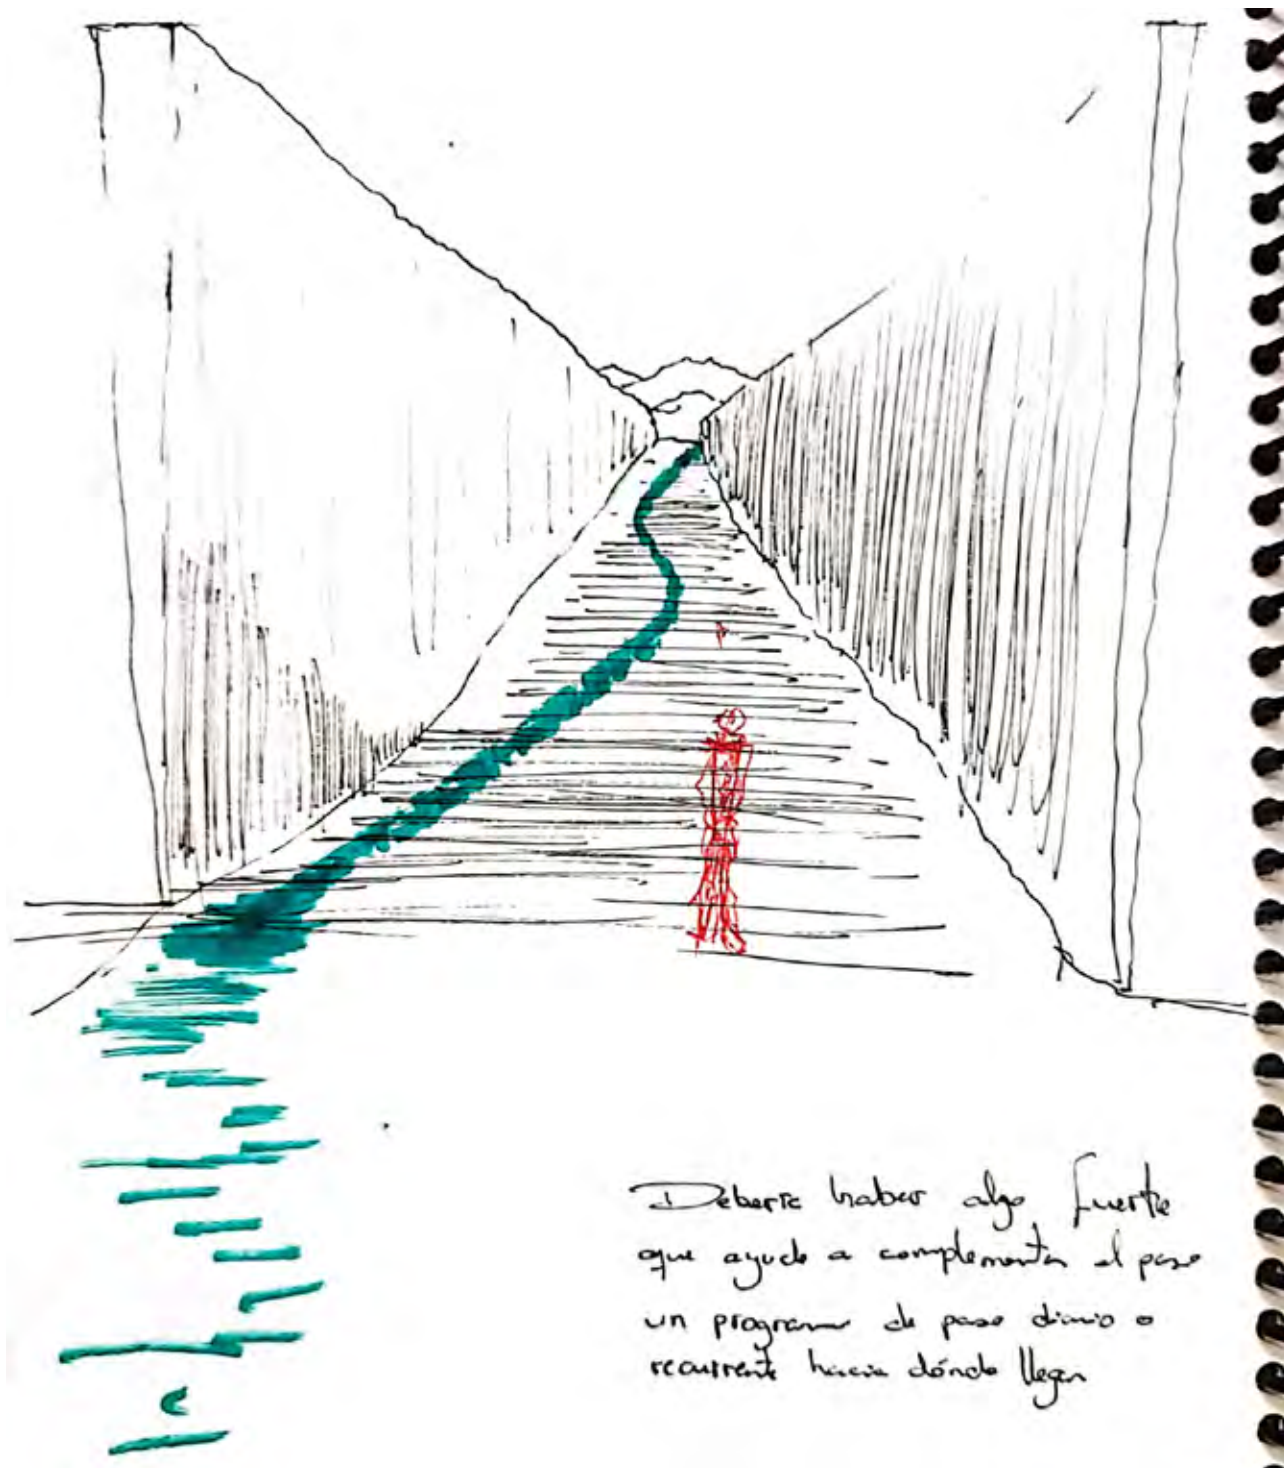 Debería haber algo fuerte
que ayude a complementar el paso
un programa de paso diario o
recurrente hacia dónde llegan